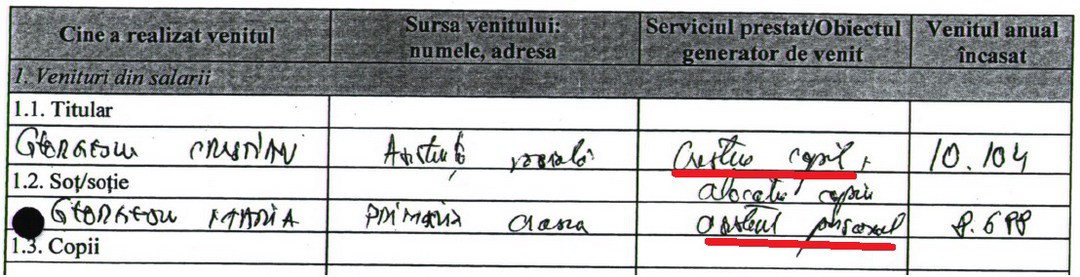 Cine a realizat venitul
Sursa venitului:
numele, adresa
Serviciul prestat/Obiectul
generator de venit
Venitul anual
încasat
1. Venituri din salarii
1.1. Titular
Georgescu Cristian Asistență socială Creștere copil, 10.104
1.2. Soț/soție alocație copii
Georgescu Maria Primăria asistent personal
1.3. Copii